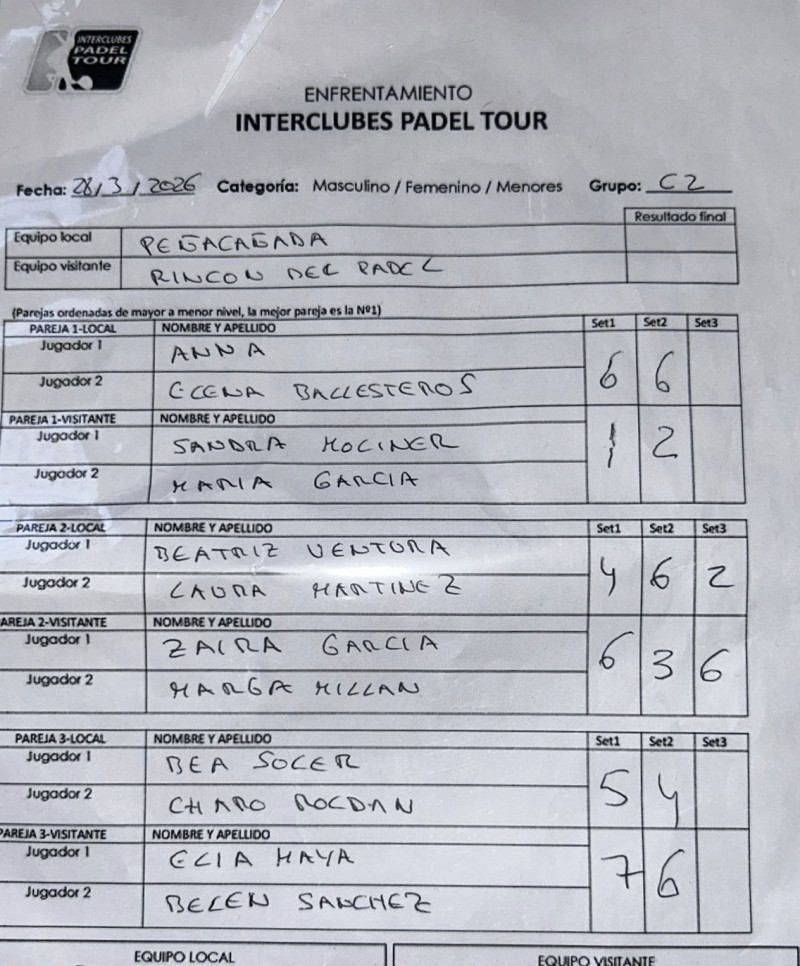 INTERCLUBES
PADEL
TOUR
ENFRENTAMIENTO
INTERCLUBES PADEL TOUR
Fecha: 28/3/2026 Categoría: Masculino / Femenino / Menores Grupo: C2
Resultado final
Equipo local PEÑACAÑADA
Equipo visitante RINCON DEL PADEL
(Parejas ordenadas de mayor a menor nivel, la mejor pareja es la Nº1)
PAREJA 1-LOCAL NOMBRE Y APELLIDO Set1 Set2 Set3
Jugador 1 ANNA
6 6
Jugador 2 ELENA BALLESTEROS
PAREJA 1-VISITANTE NOMBRE Y APELLIDO
Jugador 1 SANDRA MOLINER
1 2
Jugador 2 MARIA GARCIA
PAREJA 2-LOCAL NOMBRE Y APELLIDO Set1 Set2 Set3
Jugador 1 BEATRIZ VENTURA
4 6 2
Jugador 2 LAURA MARTINEZ
AREJA 2-VISITANTE NOMBRE Y APELLIDO
Jugador 1 ZAIRA GARCIA
6 3 6
Jugador 2 MARGA MILLAN
PAREJA 3-LOCAL NOMBRE Y APELLIDO Set1 Set2 Set3
Jugador 1 BEA SOLER
5 4
Jugador 2 CHARO ROLDAN
PAREJA 3-VISITANTE NOMBRE Y APELLIDO
Jugador 1 ELIA MAYA
7 6
Jugador 2 BELEN SANCHEZ
EQUIPO LOCAL EQUIPO VISITANTE